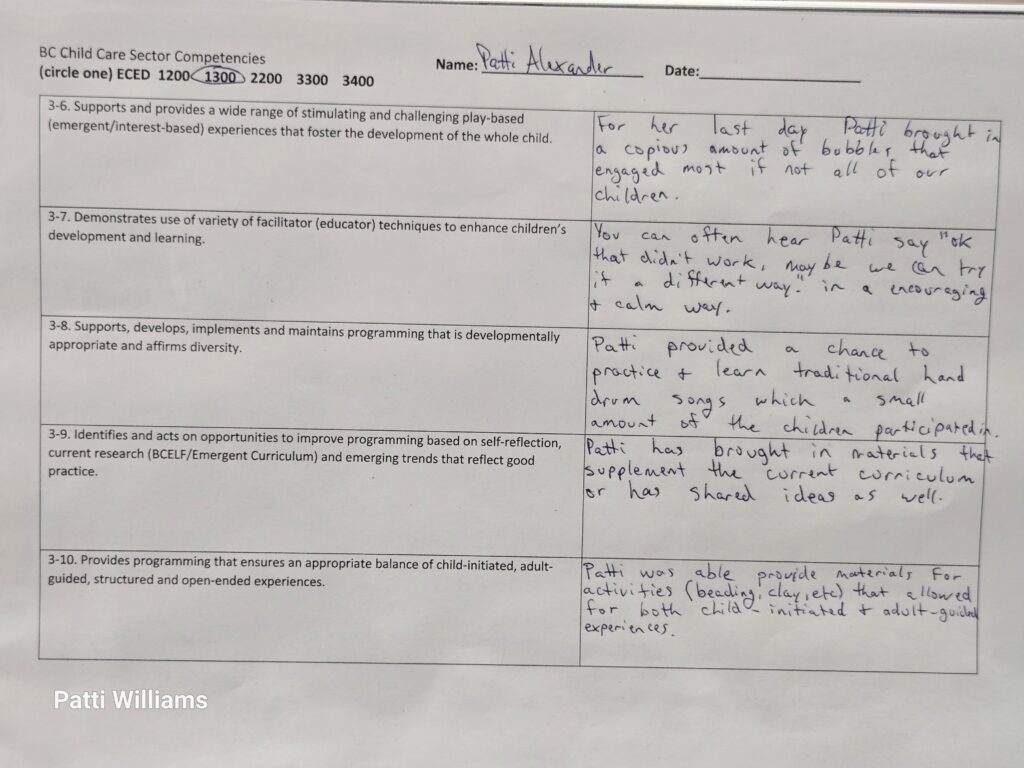 BC Child Care Sector Competencies
(circle one) ECED 1200 1300 2200 3300 3400
Name: Patti Alexander
Date:
3-6. Supports and provides a wide range of stimulating and challenging play-based
(emergent/interest-based) experiences that foster the development of the whole child.
For her last day Patti brought in
a copious amount of bubbles that
engaged most if not all of our
children.
3-7. Demonstrates use of variety of facilitator (educator) techniques to enhance children's
development and learning.
You can often hear Patti say "ok
that didn't work, maybe we can try
it a different way." in a encouraging
+ calm way.
3-8. Supports, develops, implements and maintains programming that is developmentally
appropriate and affirms diversity.
Patti provided a chance to
practice + learn traditional hand
drum songs which a small
amount of the children participated in.
3-9. Identifies and acts on opportunities to improve programming based on self-reflection,
current research (BCELF/Emergent Curriculum) and emerging trends that reflect good
practice.
Patti has brought in materials that
supplement the current curriculum
or has shared ideas as well.
3-10. Provides programming that ensures an appropriate balance of child-initiated, adult-
guided, structured and open-ended experiences.
Patti was able provide materials for
activities (beading, clay, etc) that allowed
for both child-initiated + adult-guided
experiences.
Patti Williams